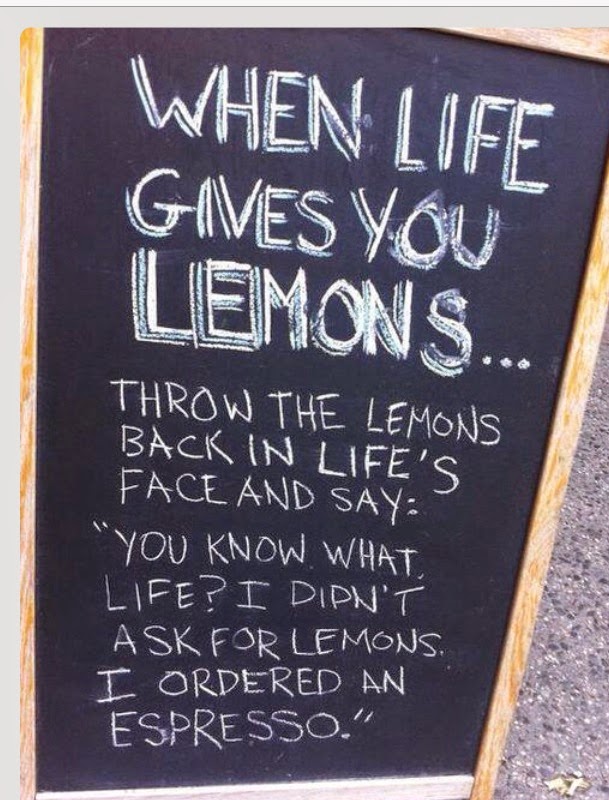 WHEN LIFE
GIVES YOU
LEMONS...
THROW THE LEMONS
BACK IN LIFE'S
FACE AND SAY:
"YOU KNOW WHAT,
LIFE? I DIDN'T
ASK FOR LEMONS.
I ORDERED AN
ESPRESSO."